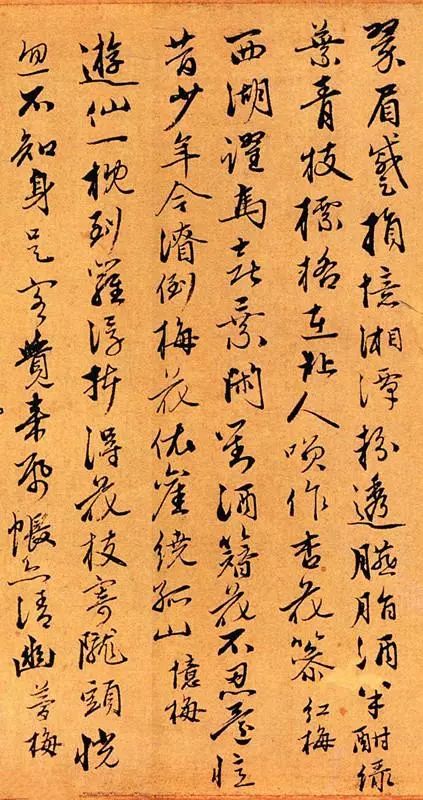 翠眉蹙損憶湘潭粉透臙脂酒半酣綠
葉青枝標格在耻人喚作杏花篸紅梅
西湖躍馬喜乘閒對酒簪花不忍還憶
昔少年今潦倒梅花依舊繞孤山憶梅
遊仙一枕到羅浮折得花枝寄隴頭恍
忽不知身是客覺來帋帳亦清幽夢梅